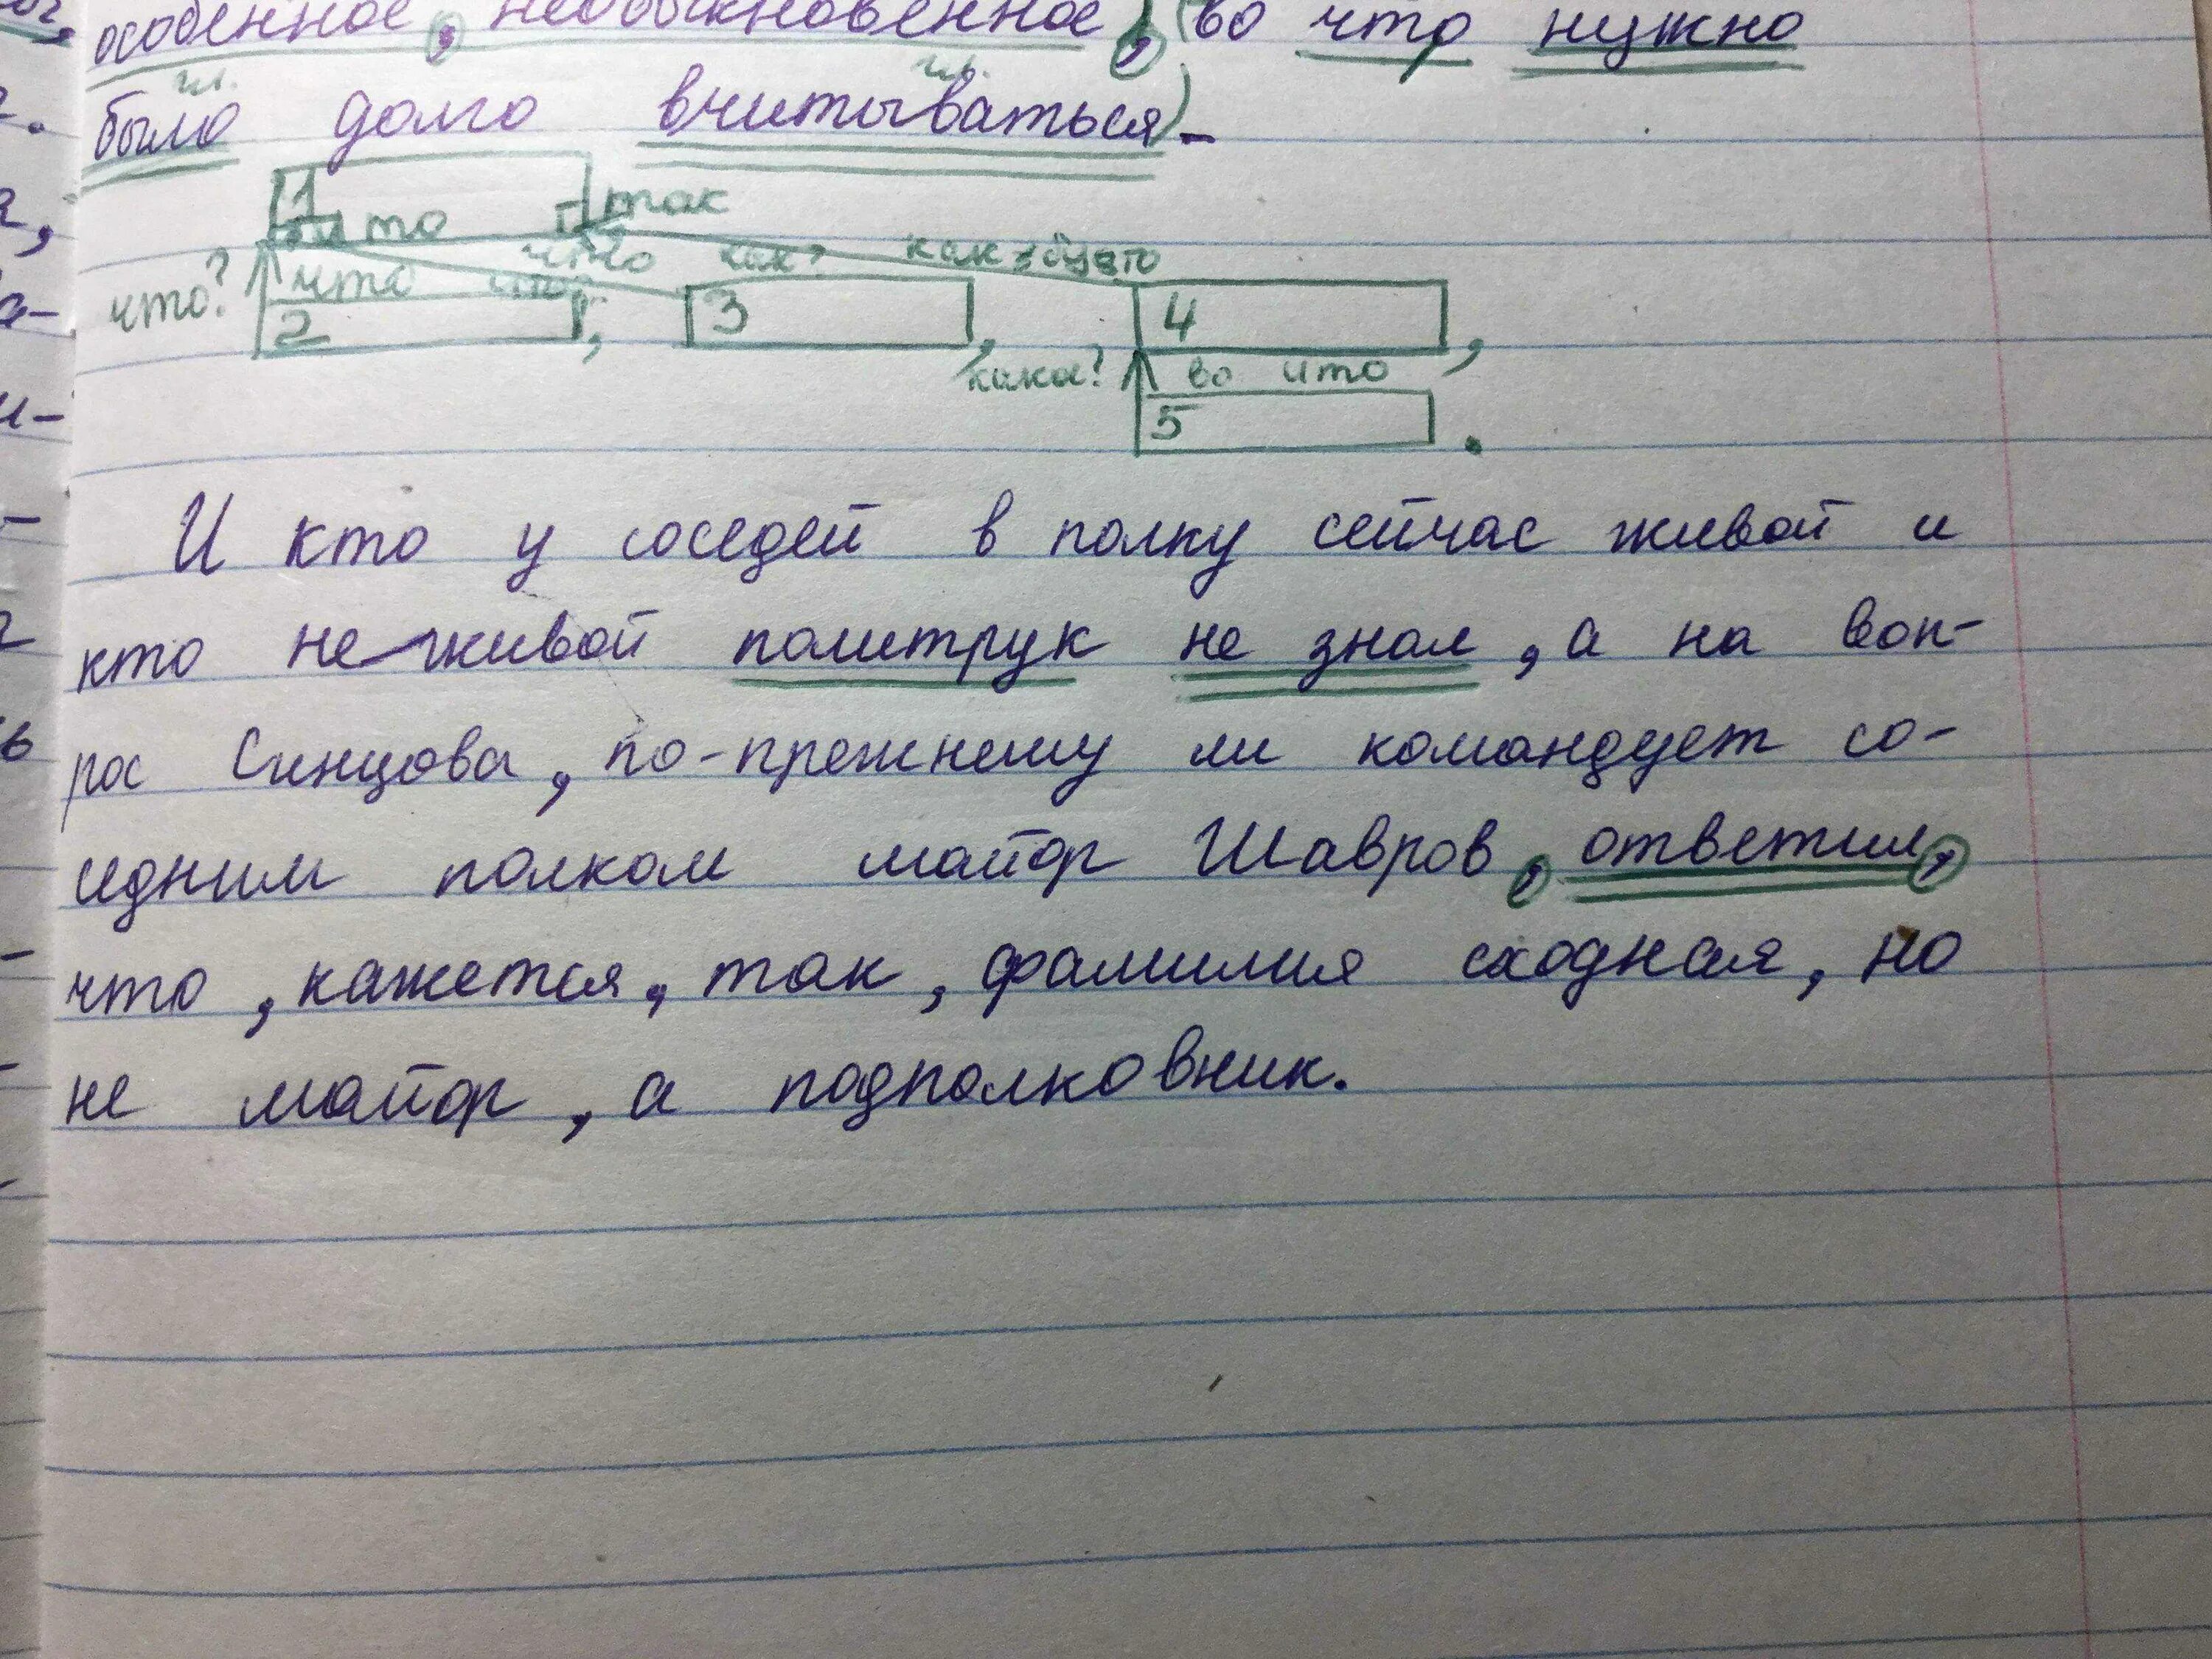 особенное, необыкновенное, (во что нужно
гл. гл.
было долго вчитываться)
1 то так
что? что что как? как будто
2 , 3 , 4 ,
какое? во что
5 .
И кто у соседей в полку сейчас живой и
кто не живой политрук не знал, а на воп-
рос Синцова, по-прежнему ли командует со-
седним полком майор Шавров, ответил,
что, кажется, так, фамилия сходная, но
не майор, а подполковник.